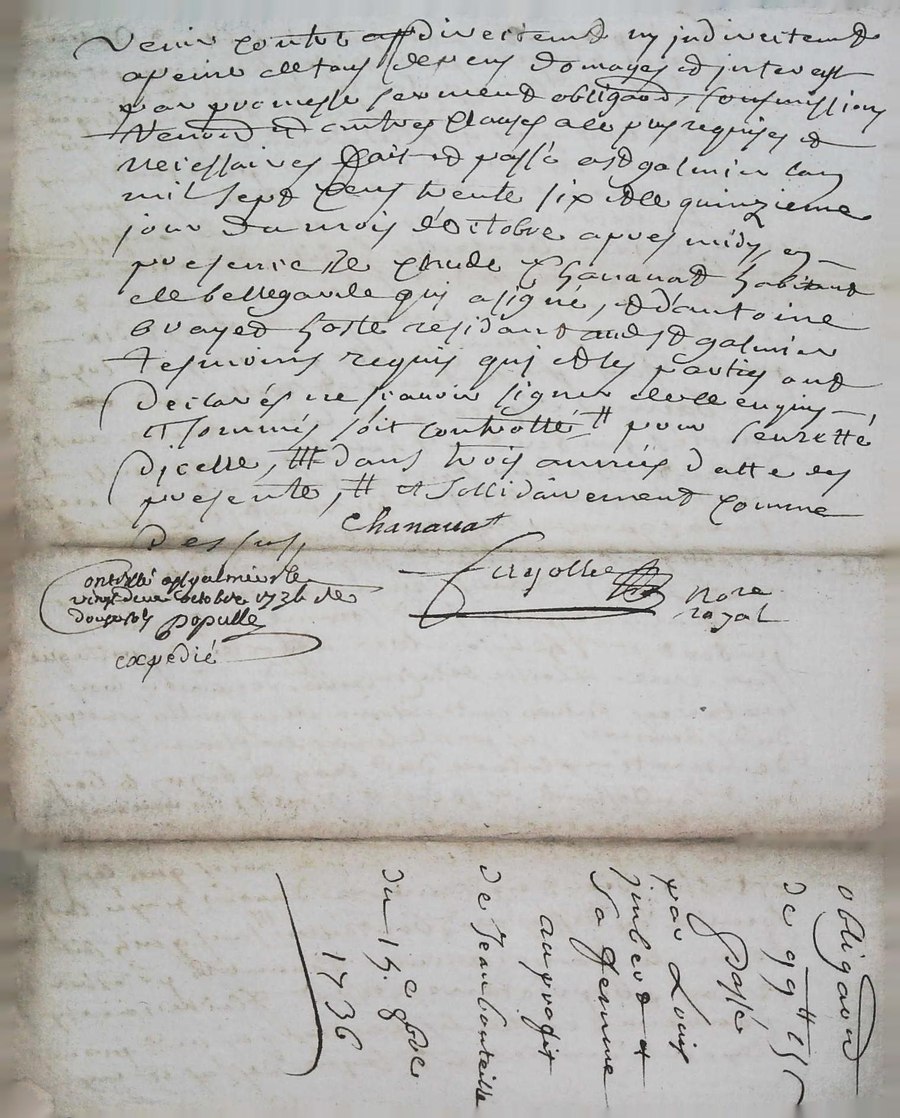 venir contre directement ny indirectement
a peine de tous despens domages et interest
par promesse serment obligaon, soubmissions
renond et autres clauses a ce plus requises et
necessaires fait et passé a st galmier lan
mil sept cens trente six et le quinzieme
jour du mois d'octobre apres midy en
presence de claude Chanauat habitant
de bellegarde qui a signé, et d'antoine
hoste residant aud st galmier
tesmoins requis qui et les parties ont
declarés ne scauoir signer de ce enquis
et sommés soit controllé # pour seuretté
dicelle, dans trois années datte des
presente, # et sollidairement comme
dessus,
Chanauat
nore
royal
ontrollé a st galmier le
vingt deux octobre 1736 Re
douze sols Populle
expedié
obligaon
de 99tt 15s
passé
par Louis
jmbert et
sa femme
au profit
de Jean bouteille
du 15.e 8bre
1736